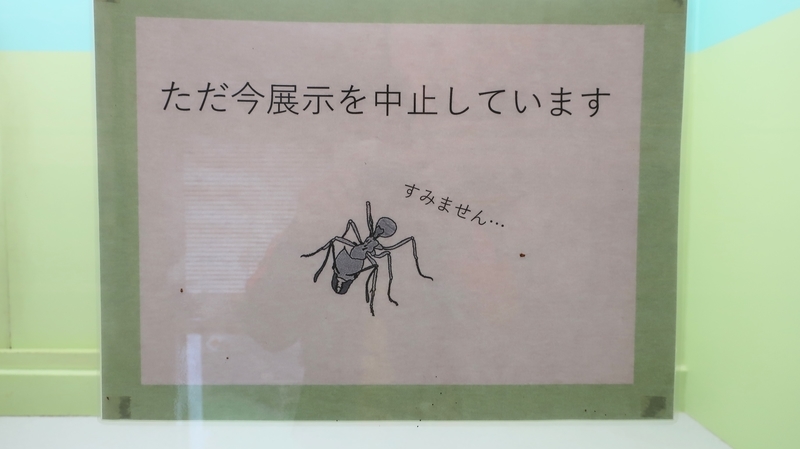 ただ今展示を中止しています
すみません…